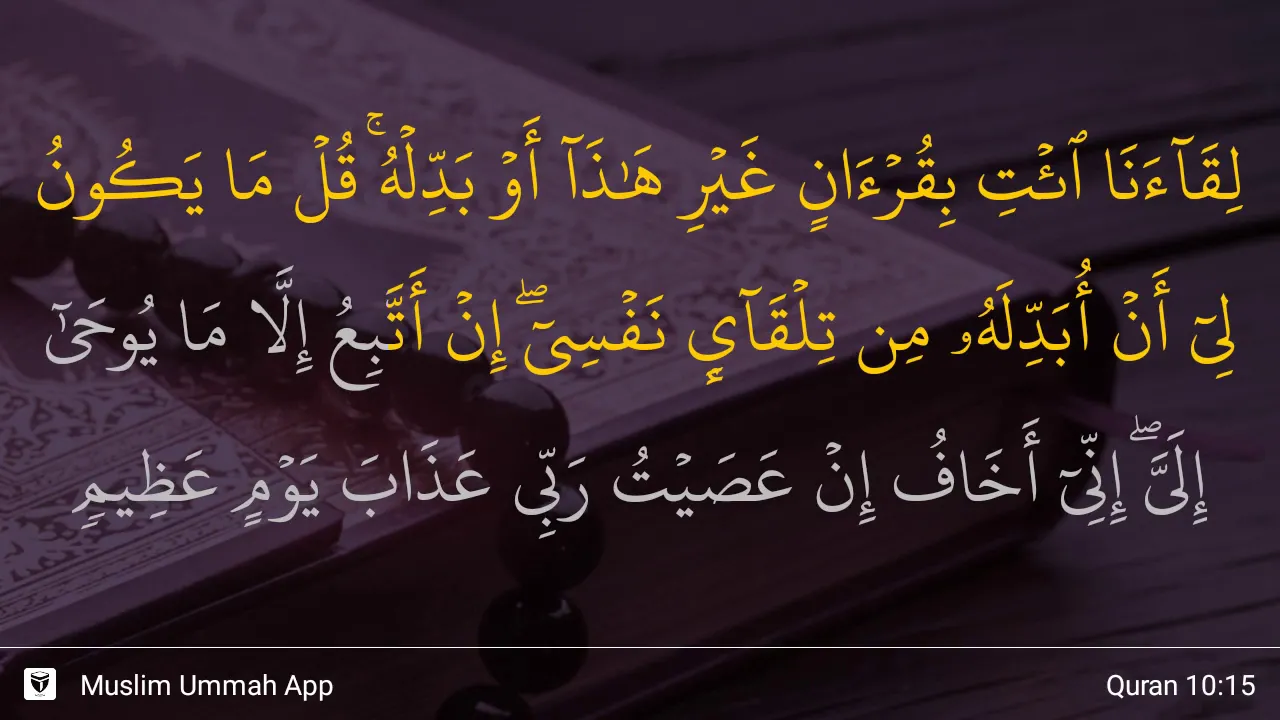 لِقَآءَنَا ٱئۡتِ بِقُرۡءَانٍ غَيۡرِ هَٰذَآ أَوۡ بَدِّلۡهُۚ قُلۡ مَا يَكُونُ
لِيٓ أَنۡ أُبَدِّلَهُۥ مِن تِلۡقَآيِٕ نَفۡسِيٓۖ إِنۡ أَتَّبِعُ إِلَّا مَا يُوحَىٰٓ
إِلَيَّۖ إِنِّيٓ أَخَافُ إِنۡ عَصَيۡتُ رَبِّي عَذَابَ يَوۡمٍ عَظِيمٖ
Muslim Ummah App
Quran 10:15